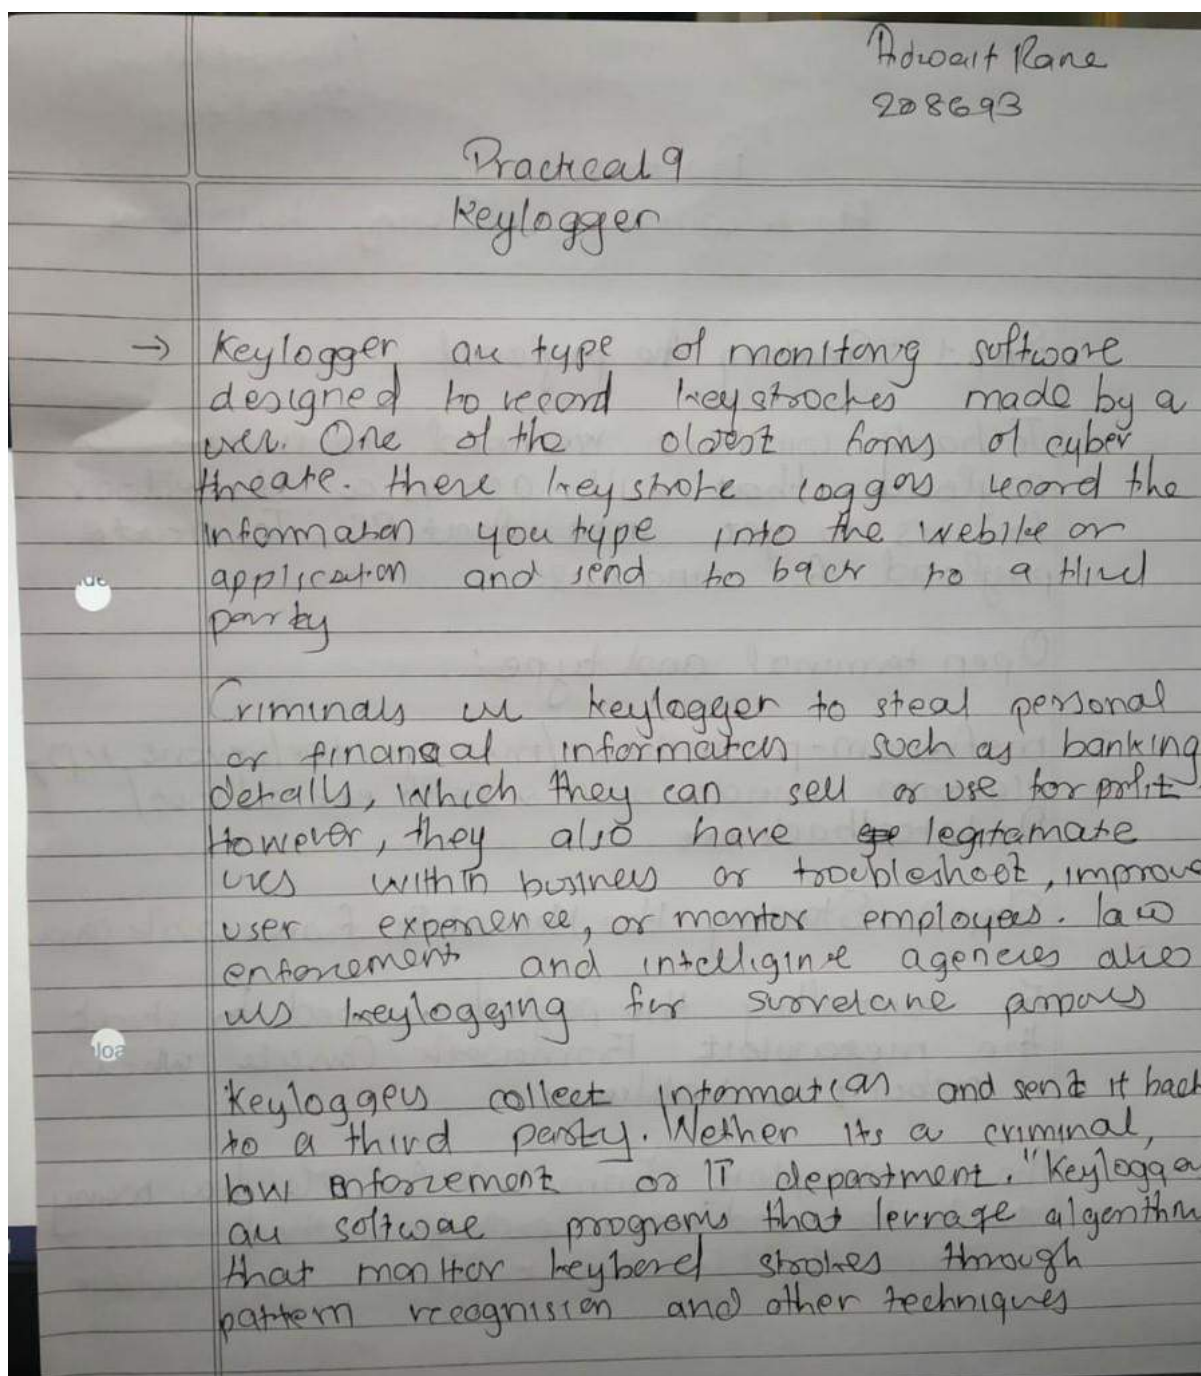 Adwait Rane
208693
Practical 9
Keylogger
→ Keylogger au type of monitoring software
designed to record keystroches made by a
user. One of the oldest forms of cyber
threate. these keystroke loggers record the
information you type into the website or
application and send to back to a third
party
Criminals use keylogger to steal personal
or financial information such as banking
details, which they can sell or use for profit
However, they also have legitamate
uses within business or troubleshoot, improve
user experience, or monitor employees. law
enforcement and intelligine agencies also
uses keylogging for
Keyloggers collect information and send it back
to a third party. Wether its a criminal,
law enforcement or IT department. "Keylogger
au software programs that levrage algorithm
that monitor keybord strokes through
pattern recognision and other techniques